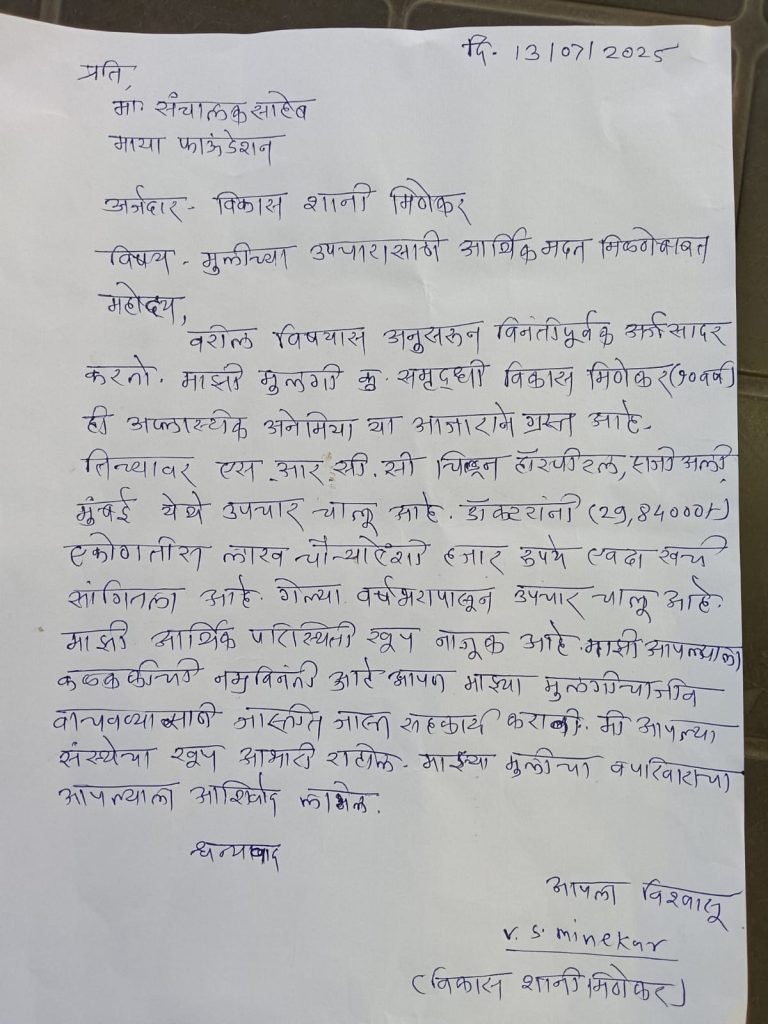 दि. 13/07/2025
प्रति,
मा. संचालक साहेब
माया फाऊंडेशन
अर्जदार - विकास शानी मिणेकर
विषय - मुलीच्या उपचारासाठी आर्थिक मदत मिळणेबाबत
महोदय,
वरील विषयास अनुसरून विनंतीपूर्वक अर्ज सादर
करतो. माझी मुलगी कु. समृद्धी विकास मिणेकर (१० वर्ष)
ही अप्लास्टीक अनेमिया या आजाराने ग्रस्त आहे.
तिच्यावर एस. आर. सी. सी चिल्ड्रन हॉस्पीटल, हाजी अली,
मुंबई येथे उपचार चालू आहे. डॉक्टरांनी (29,84000/-)
एकोणतीस लाख चौऱ्याऐंशी हजार रुपये एवढा खर्च
सांगितला आहे. गेल्या वर्षभरापासून उपचार चालू आहे.
माझी आर्थिक परिस्थिती खूप नाजूक आहे. माझी आपल्याला
कळकळीची नम्र विनंती आहे आपण माझ्या मुलगीचा जीव
वाचवण्यासाठी जास्तीत जास्त सहकार्य करावी. मी आपल्या
संस्थेचा खूप आभारी राहील. माझ्या मुलीचा व परिवाराचा
आपल्याला आशिर्वाद लाभेल.
धन्यवाद
आपला विश्वासू
V. S. Minekar
(विकास शानी मिणेकर)